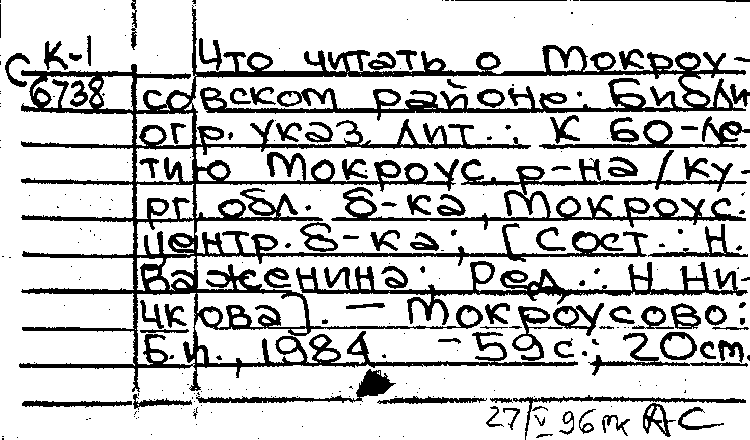 К-1 Что читать о Мокроу-
С 6738 совском районе: Библи
огр. указ. лит.: К 60-ле-
тию Мокроус. р-на / Ку-
рг. обл. б-ка, Мокроус.
центр. б-ка; [Сост.: Н.
Важенина; Ред.: Н Ни-
чкова]. — Мокроусово:
Б.и., 1984. - 59 с.; 20 см.
27/V 96 мк АС